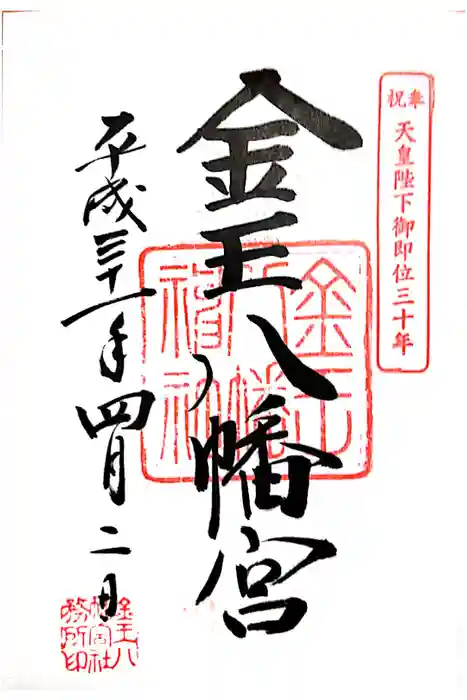 奉祝
天皇陛下御即位三十年
金王八幡宮
平成三十一年四月二日
金王八幡宮社務所印